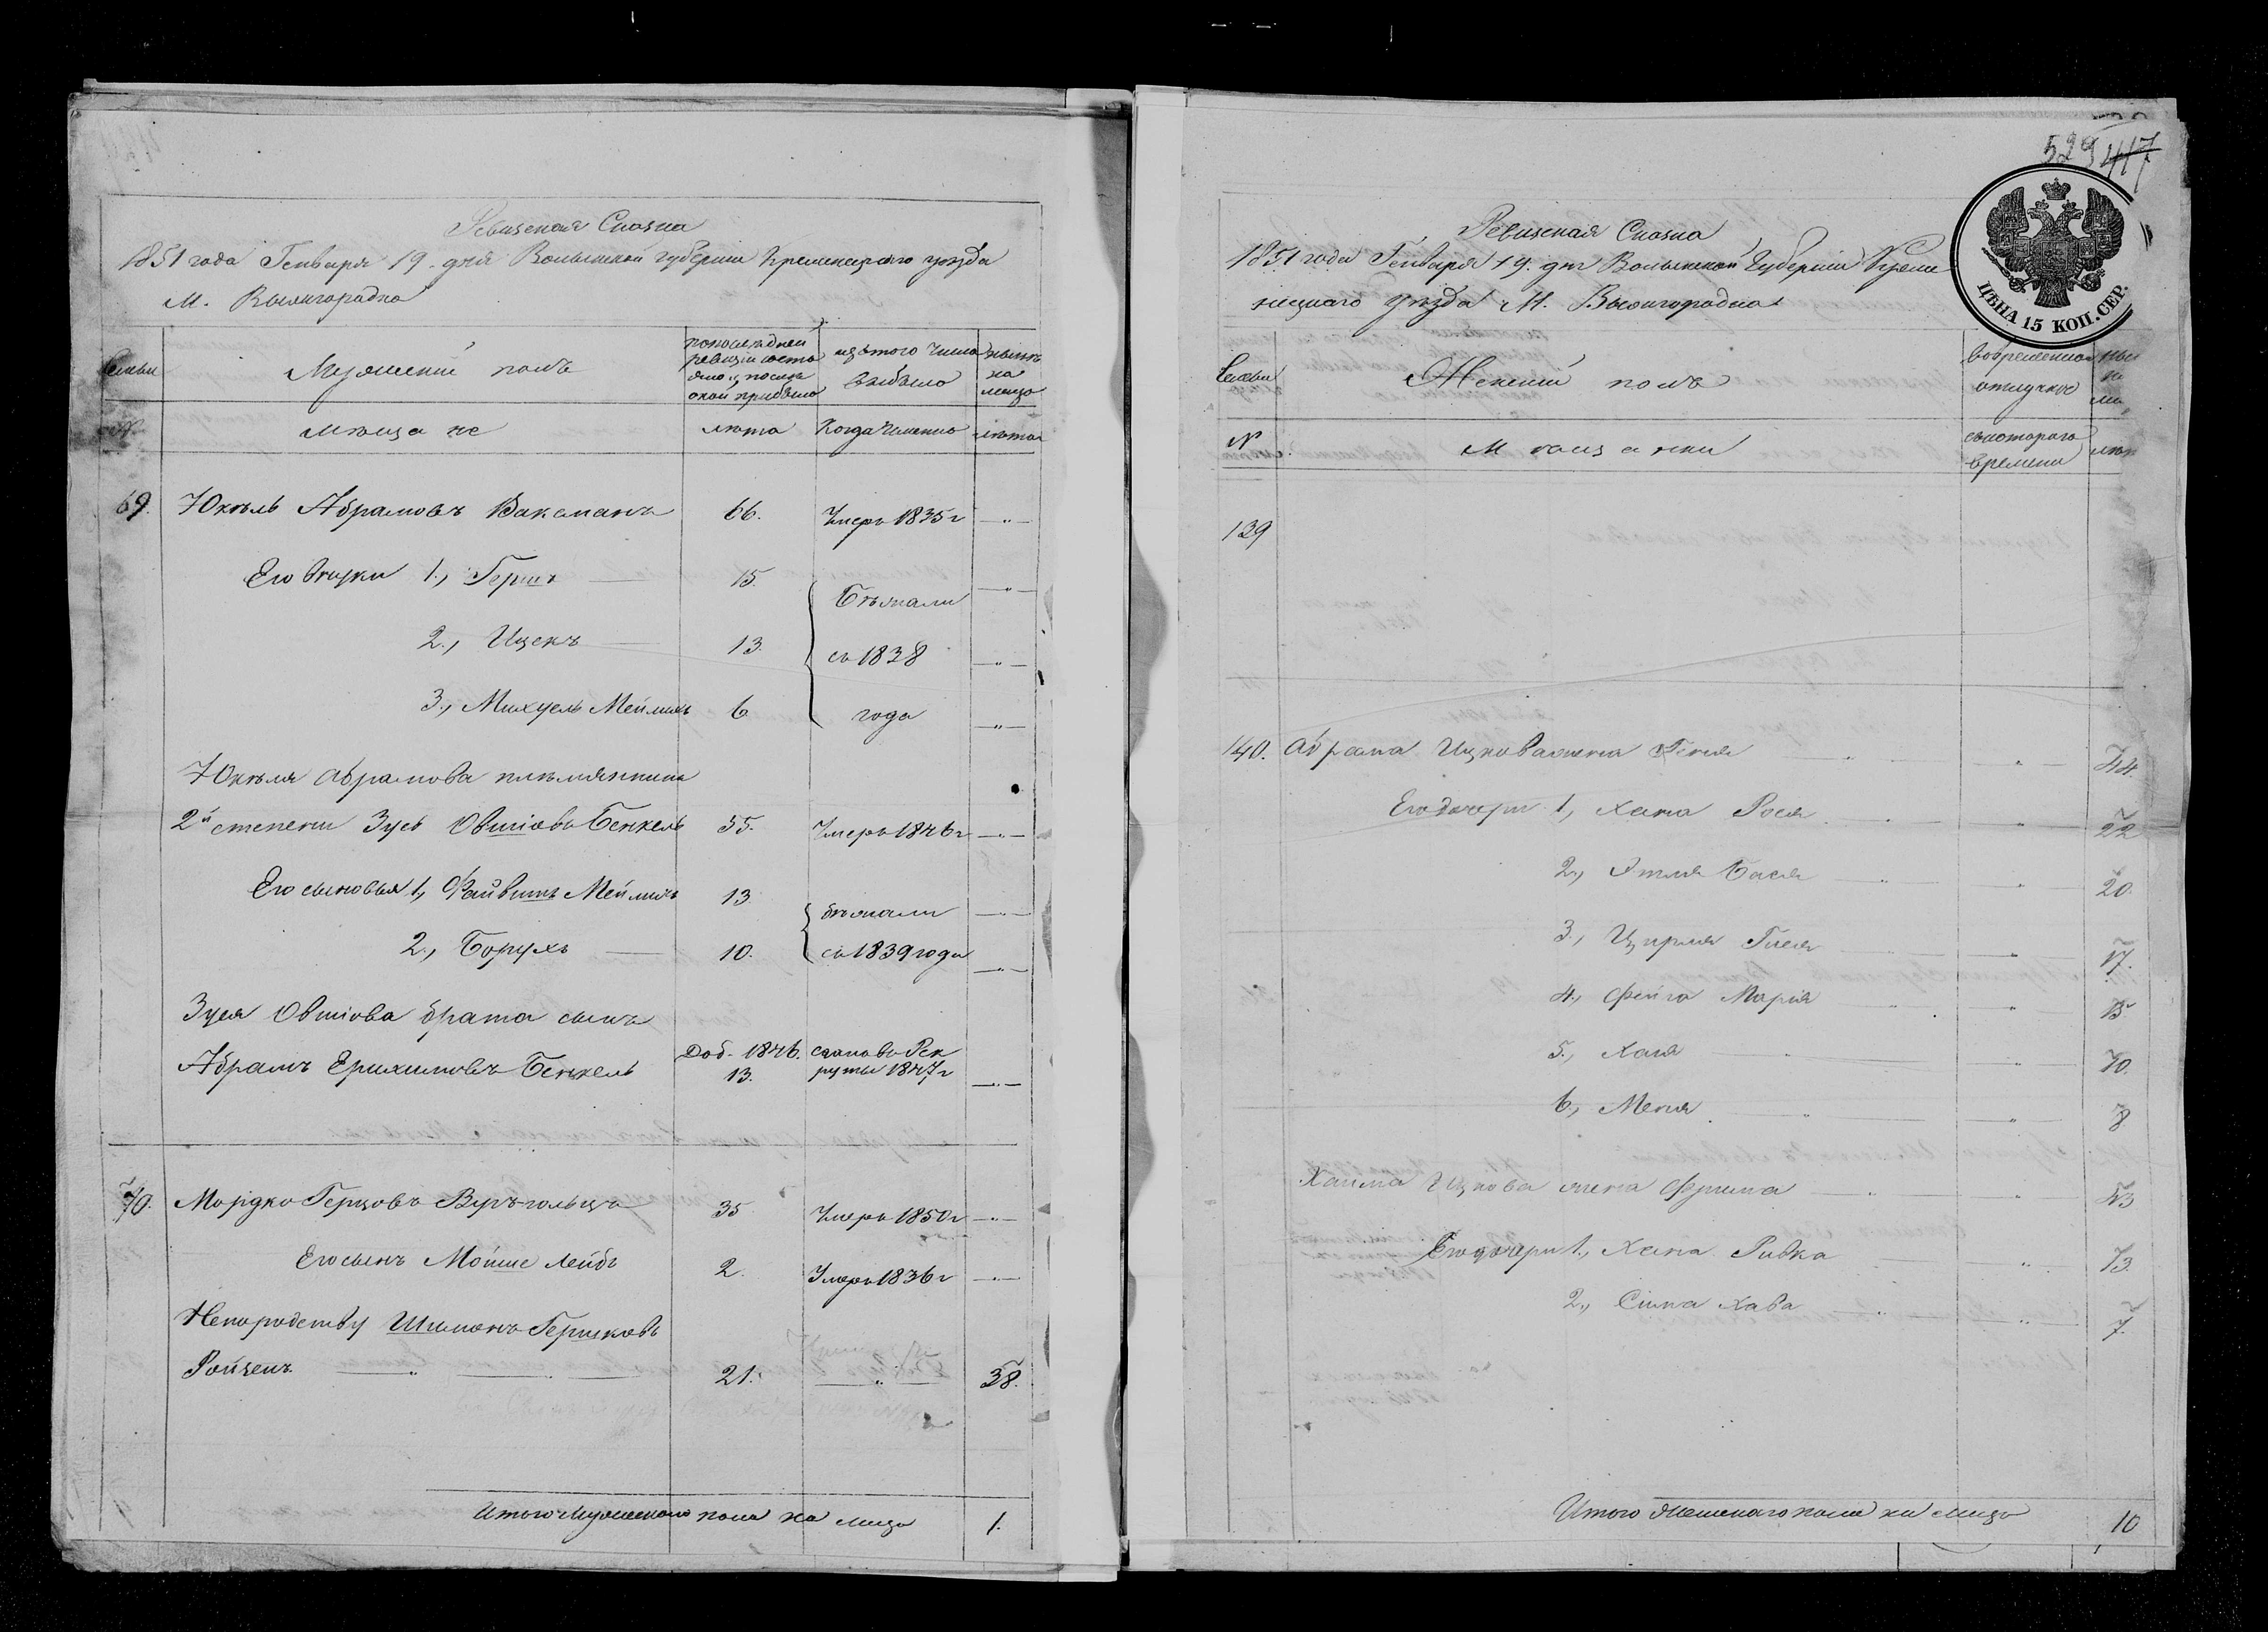 Ревизская Сказка
1851 года Генваря 19. дня Волынской Губернiи Кременецкаго уезда
М. Вышгородка
Семьи
Мужеский полъ
по последней ревизiи состояло и после оной прибыло
изъ того числа выбыло
ныне на лицо
№
мещане
лета
Когда именно
лета
69. Юкель Абрамовъ Ваксманъ 66. Умеръ 1835 г
Его внуки 1., Гершъ 15. Бежали
2., Ицекъ 13. съ 1838
3., Михуель Мейлихъ 6 года
Юкеля Абрамова племянникъ
2й степени Зусь Овшiовъ Бенкель 55. Умеръ 1846 г
Его сыновья 1., Файвишъ Мейлихъ 13 бежали
2., Борухъ 10. съ 1839 года
Зуся Овшiова брата сынъ
Абрамъ Ерихимовъ Бенкель Доб. 1846. 13. Рекруты 1847 г
70. Мордко Герцовъ 35 Умеръ 1850 г
Его сынъ Мойше Лейбъ 2. Умеръ 1836 г
Непородству Шимонъ Гершковъ
Ройзенъ 21. 38.
Итого мужескаго пола на лицо 1.
529 417
ЦѢНА 15 КОП. СЕР.
Ревизская Сказка
1851 года Генваря 19. дня Волынской Губернiи Креме
нецкаго уезда М. Вышгородка
Семьи
Женский полъ
во временной отлучке
№
Мещанки
съ котораго времени
139
140. Абрама Ицкова жена Геня 44.
Его дочери 1., Хана Рося 22
2., Этля Бася 20.
3., Цирля Гися 17.
4., Фейга Марiя 15
5., Хая 10.
6., Меня 8
Хаима Ицкова жена Фрима 43
Его дочери 1., Хана Ривка 13.
2., Сима Хава 7.
Итого женскаго пола на лицо 10